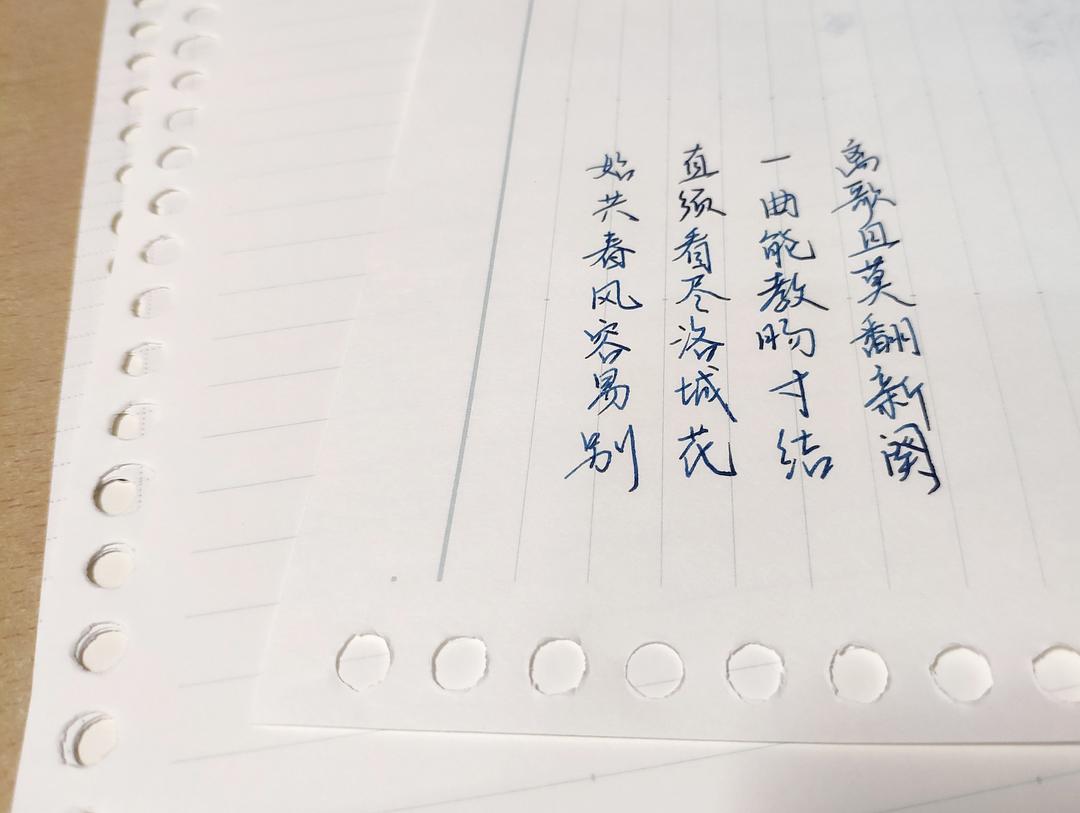 离歌且莫翻新阕
一曲能教肠寸结
直须看尽洛城花
始共春风容易别